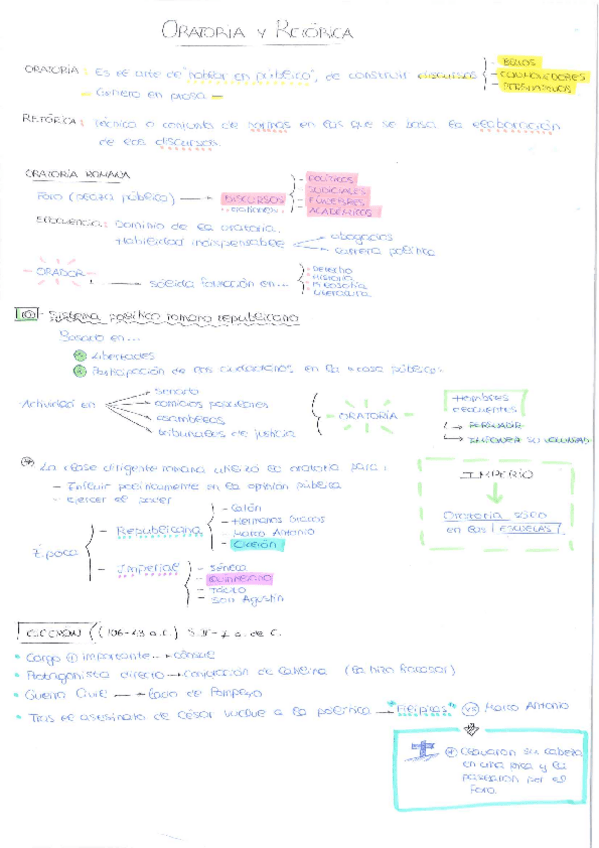 ORATORIA Y RETÓRICA
ORATORIA: Es el arte de "hablar en público", de construir discursos - BELLOS
- CONMOVEDORES
- PERSUASIVOS
- Género en prosa -
RETÓRICA: Técnica o conjunto de normas en las que se basa la elaboración
de los discursos.
ORATORIA ROMANA
Foro (plaza pública) → DISCURSOS
- POLÍTICOS
- JUDICIALES
- FÚNEBRES
- ACADÉMICOS
ELOCUENCIA: Dominio de la oratoria.
Habilidad indispensable → abogacías
→ carrera política
- ORADOR -
→ sólida formación en...
- Derecho
- Historia
- Filosofía
- Literatura
- Sistema político romano republicano
Basado en...
Libertades
Participación de los ciudadanos en la "cosa pública".
Actividad en → senado
→ comicios populares
→ asambleas
→ tribunales de justicia
ORATORIA
Hombres
elocuentes
→ PERSUADIR
→ IMPONER SU VOLUNTAD
La clase dirigente romana utilizó la oratoria para:
- Influir positivamente en la opinión pública
- ejercer el poder
IMPERIO
↓
Oratoria sólo
en las ESCUELAS
Época
- Republicana
- Catón
- Hermanos Gracos
- Marco Antonio
- Cicerón
- Imperial
- Séneca
- QUINTILIANO
- Tácito
- San Agustín
CICERÓN (106-43 a.C.) S. II-I a. de C.
• Cargo + importante → cónsul
• Protagonista directo → conjuración de Catilina (la hizo fracasar)
• Guerra Civil → lado de Pompeyo
• Tras el asesinato de César vuelve a la política → "Filípicas" vs Marco Antonio
Clavaron su cabeza
en una pica y la
pasearon por el
Foro.